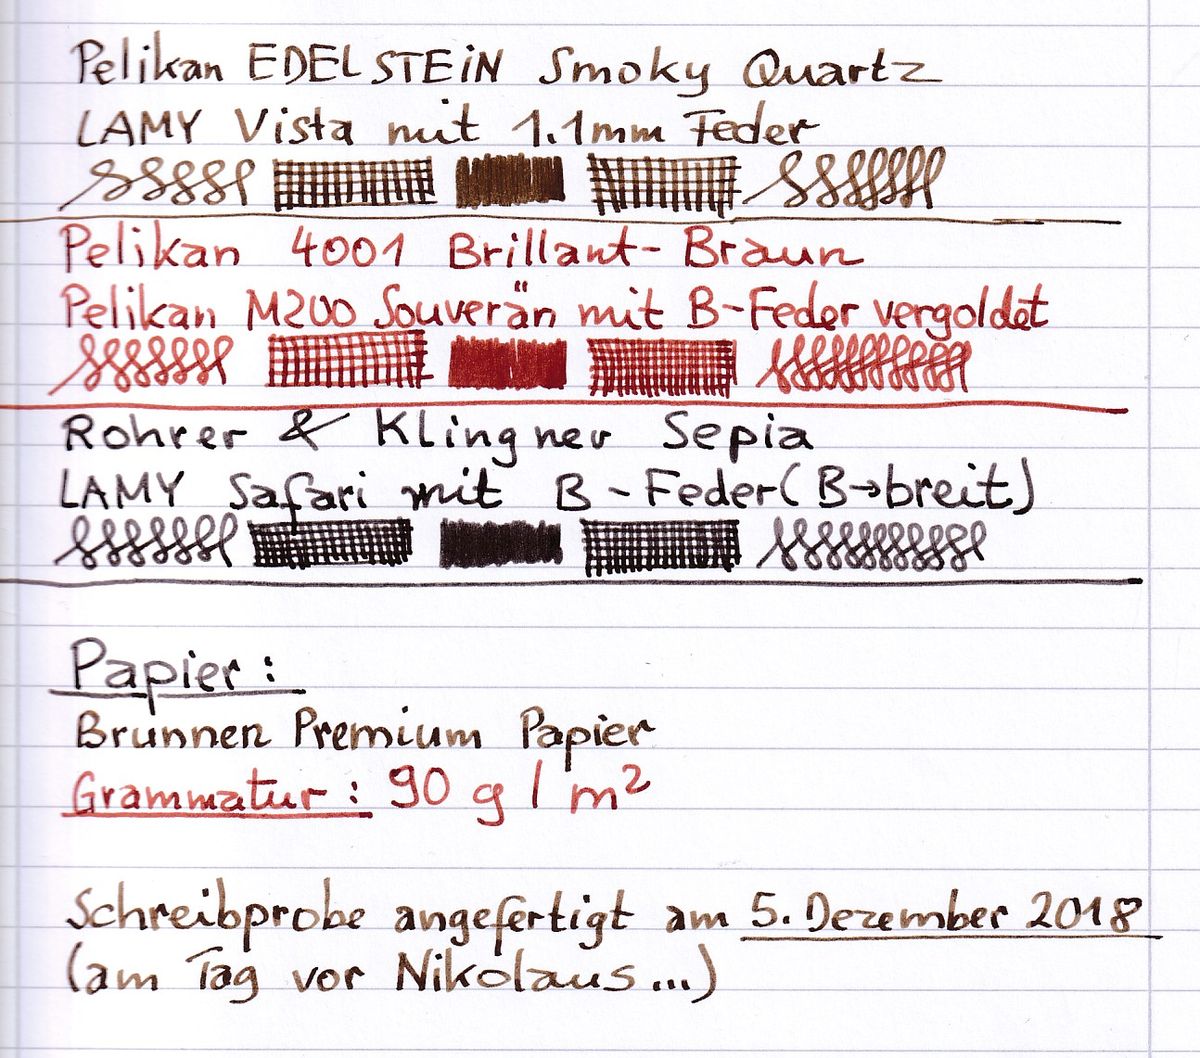 Pelikan EDELSTEiN Smoky Quartz
LAMY Vista mit 1.1mm Feder
Pelikan 4001 Brillant-Braun
Pelikan M200 Souverän mit B-Feder vergoldet
Rohrer & Klingner Sepia
LAMY Safari mit B-Feder (B→breit)
Papier:
Brunnen Premium Papier
Grammatur: 90 g / m²
Schreibprobe angefertigt am 5. Dezember 2018
(am Tag vor Nikolaus...)